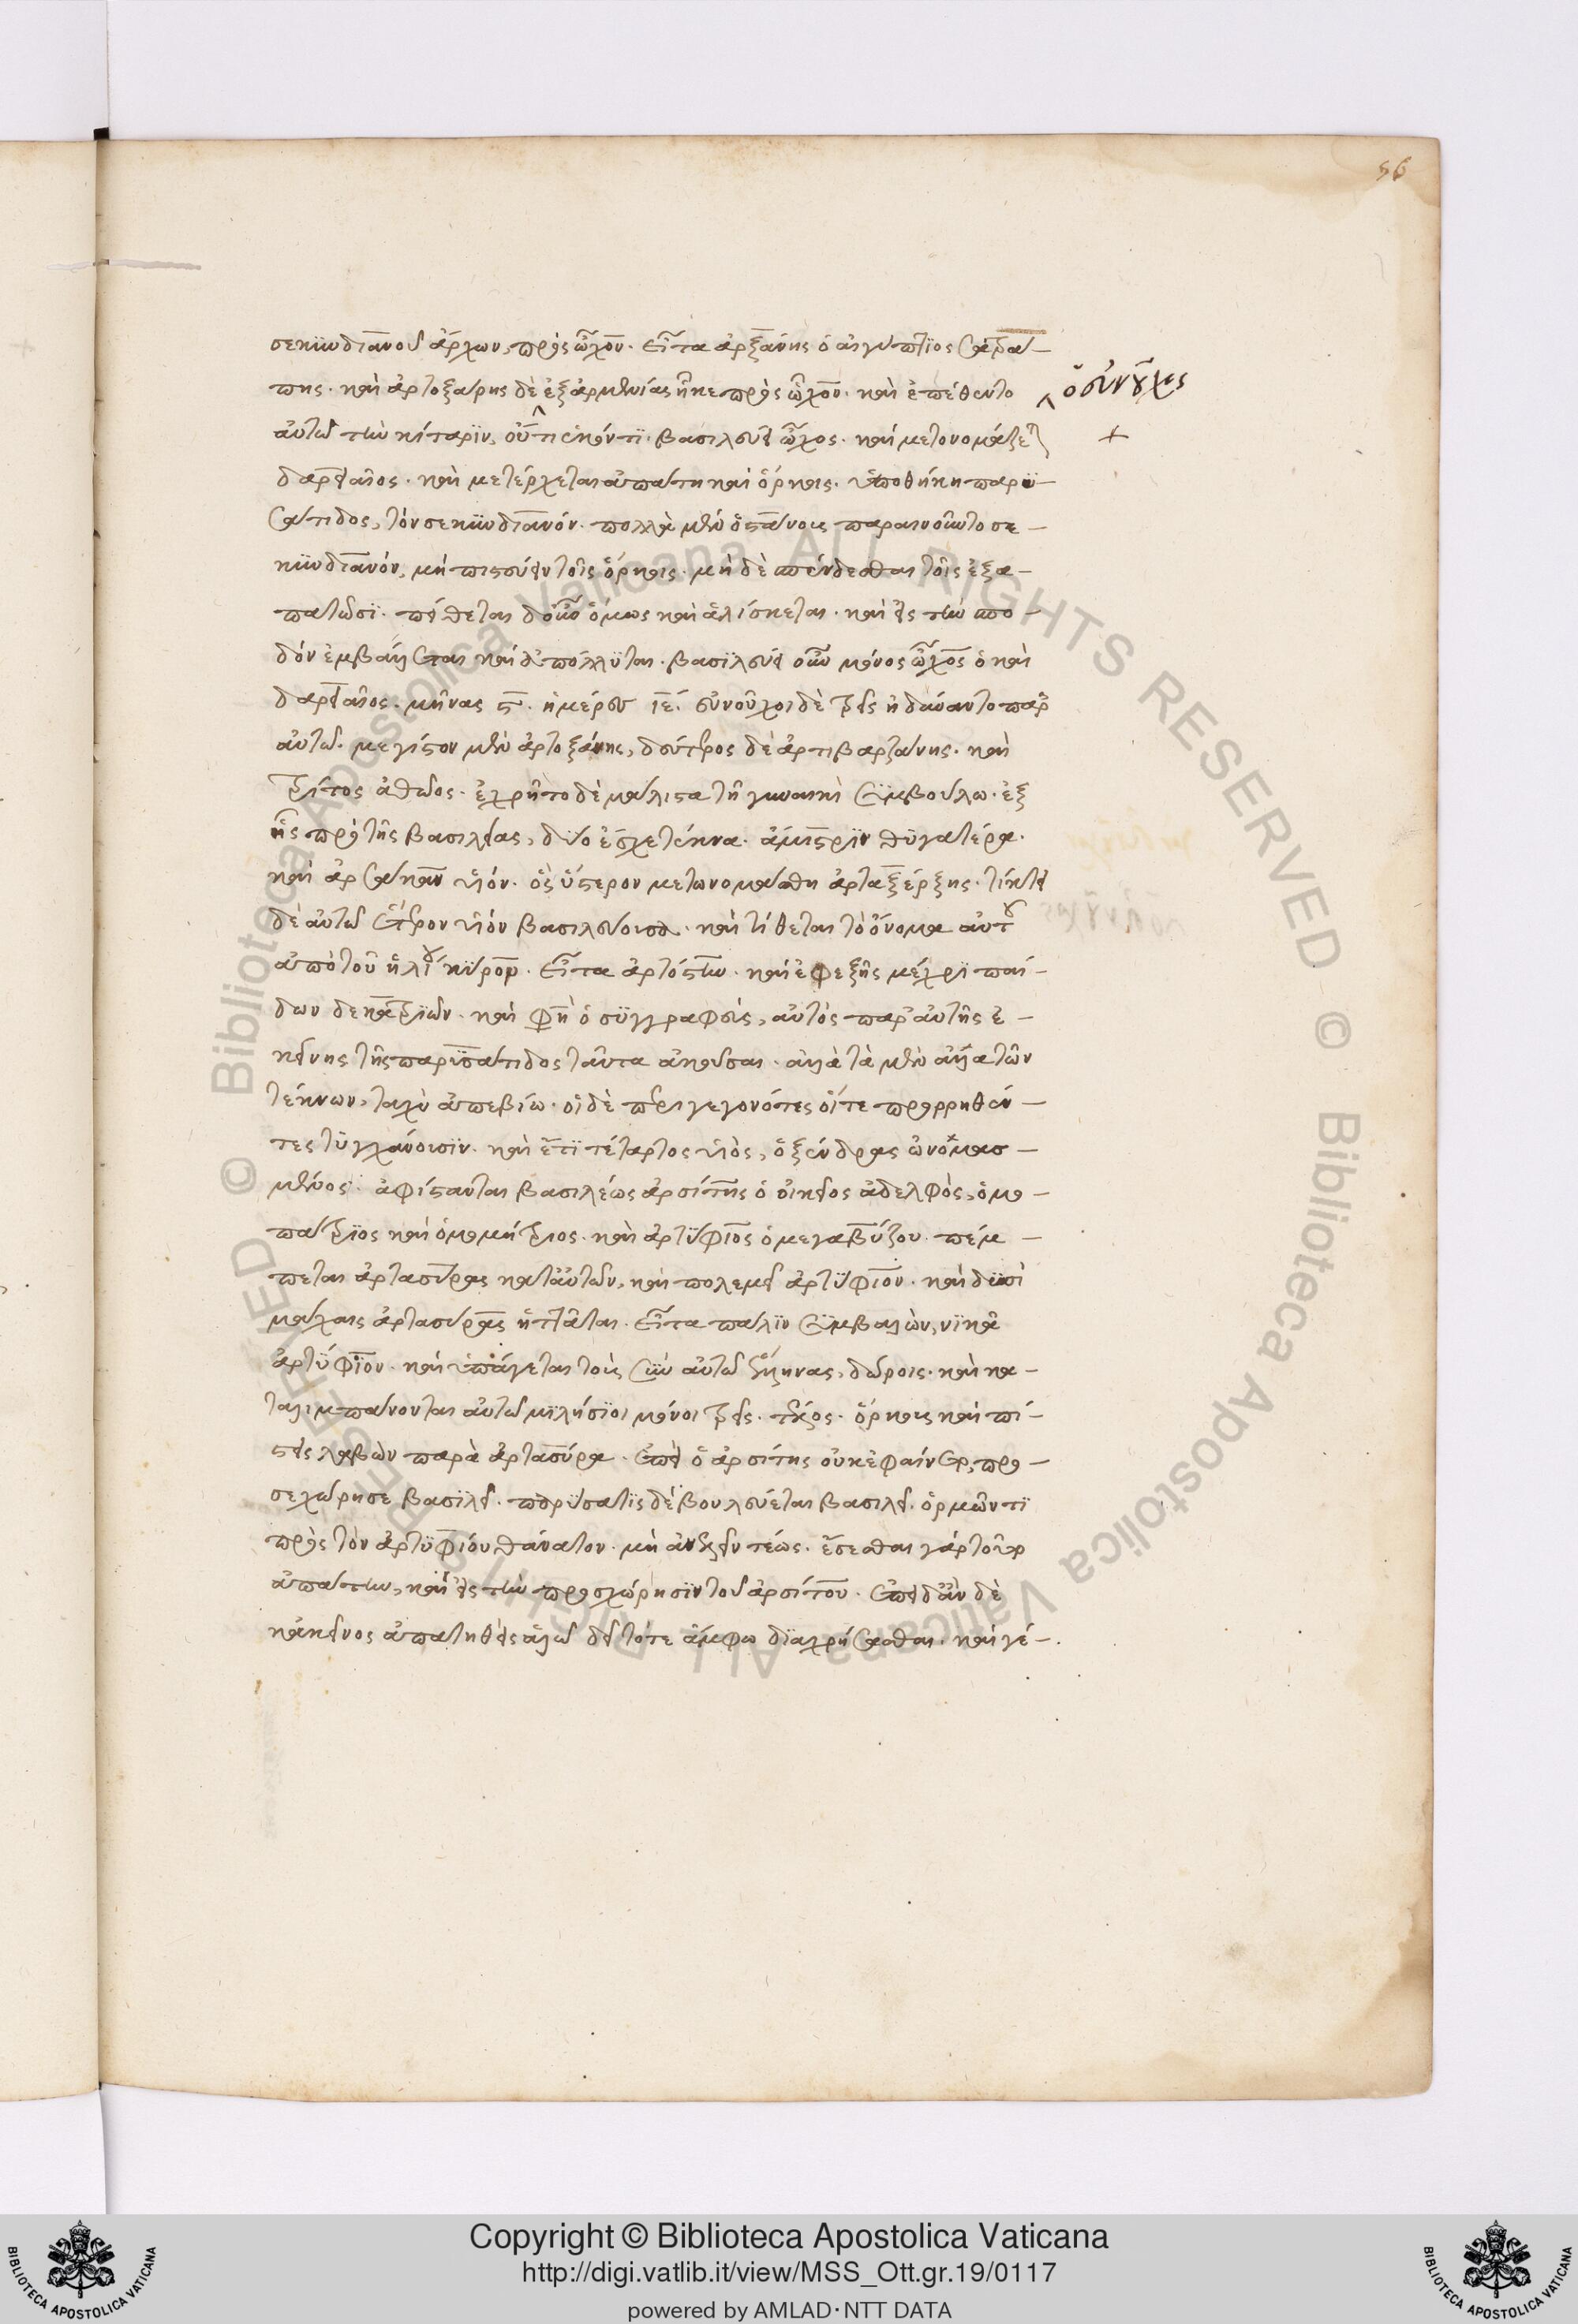 56
σεκυνδιανοῦ ἄρχων, πρὸς ὦχον. εἶτα ἀρξάνης ὁ αἰγύπτιος σατρά–
πης. καὶ ἀρτοξάρης δὲ ἐξ ἀρμενίας ἧκε πρὸς ὦχον. καὶ ἐπέθεντο
ὁ εὐνοῦχος
αὐτῷ τὴν κίταριν, οὔτι ἑκόντι. βασιλεύει ὦχος. καὶ μετονομάζεται
+
δαρειαῖος. καὶ μετέρχεται ἀπάτῃ καὶ ὅρκοις. ὑποθήκῃ παρυ–
σάτιδος, τὸν σεκυνδιανόν. πολλὰ μὲν ὁ στάνοις παραινοῦντο σε–
κυνδιανόν, μὴ πιστεύειν τοῖς ὅρκοις. μὴ δὲ σπένδεσθαι τοῖς ἐξα–
πατῶσι. πείθεται δ' οὖν ὅμως καὶ ἁλίσκεται. καὶ εἰς τὴν σπο–
δὸν ἐμβάλλεται καὶ ἀπόλλυται. βασιλεύει οὖν μόνος ὦχος ὁ καὶ
δαρειαῖος. μῆνας ϛ. ἡμέρας ιε. εὐνοῦχοι δὲ τρεῖς ἠδύναντο παρ'
αὐτῷ. μέγιστον μὲν ἀρτοξάρης, δεύτερος δὲ ἀρτιβαρζάνης. καὶ
τρίτος ἀθῶος. ἐχρῆτο δὲ μάλιστα τῇ γυναικὶ συμβούλῳ. ἐξ
ἧς πρὸ τῆς βασιλείας, δύο ἔσχε τέκνα. ἄμιστριν θυγατέρα.
καὶ ἀρσάκαν υἱόν. ὃς ὕστερον μετωνομάσθη ἀρταξέρξης. τίκτει
δὲ αὐτῷ ἕτερον υἱὸν βασιλεύουσα. καὶ τίθεται τὸ ὄνομα αὐτοῦ
ἀπὸ τοῦ ἡλίου κῦρον. εἶτα ἀρτόστην. καὶ ἐφεξῆς μέχρι παί–
δων δεκατριῶν. καὶ φησὶ ὁ συγγραφεὺς, αὐτὸς παρ' αὐτῆς ἐ–
κείνης τῆς παρυσάτιδος ταῦτα ἀκοῦσαι. ἀλλὰ τὰ μὲν ἄλλα τῶν
τέκνων, ταχὺ ἀπεβίω. οἱ δὲ περιγεγονότες οἵ τε προρρηθέν–
τες τυγχάνουσιν. καὶ ἔτι τέταρτος υἱὸς, ὀξένδρας ὠνομασ–
μένος. ἀφίσταται βασιλέως ἀρσίτης ὁ οἰκεῖος ἀδελφὸς, ὁμο–
πάτριος καὶ ὁμομήτριος. καὶ ἀρτύφιος ὁ μεγαβύζου. πέμ–
πεται ἀρτασύρας κατ' αὐτῶν, καὶ πολεμεῖ ἀρτύφιον. καὶ δυσὶ
μάχαις ἀρτασύρας ἡττᾶται. εἶτα πάλιν συμβαλὼν, νικᾷ
ἀρτύφιον. καὶ ὑπάγεται τοὺς σὺν αὐτῷ ἕλληνας, δώροις. καὶ κα–
ταλιμπάνονται αὐτῷ μιλήσιοι μόνοι τρεῖς. τέλος. ὅρκοις καὶ πί–
στεις λαβὼν παρὰ ἀρτασύρα. ἐπεὶ ὁ ἀρσίτης οὐκ ἐφαίνετο, προ–
σεχώρησε βασιλεῖ. παρύσατις δὲ βουλεύεται βασιλεῖ. ὁρμῶντι
πρὸς τὸν ἀρτυφίου θάνατον. μὴ ἀνελεῖν τέως. ἔσεσθαι γὰρ τοῦτο
ἀπάτην, καὶ εἰς τὴν προσχώρησιν τοῦ ἀρσίτου. ἐπειδὰν δὲ
κἀκεῖνος ἀπατηθεὶς ἁλῷ δεῖ τότε ἄμφω διαχρήσασθαι. καὶ γέ–